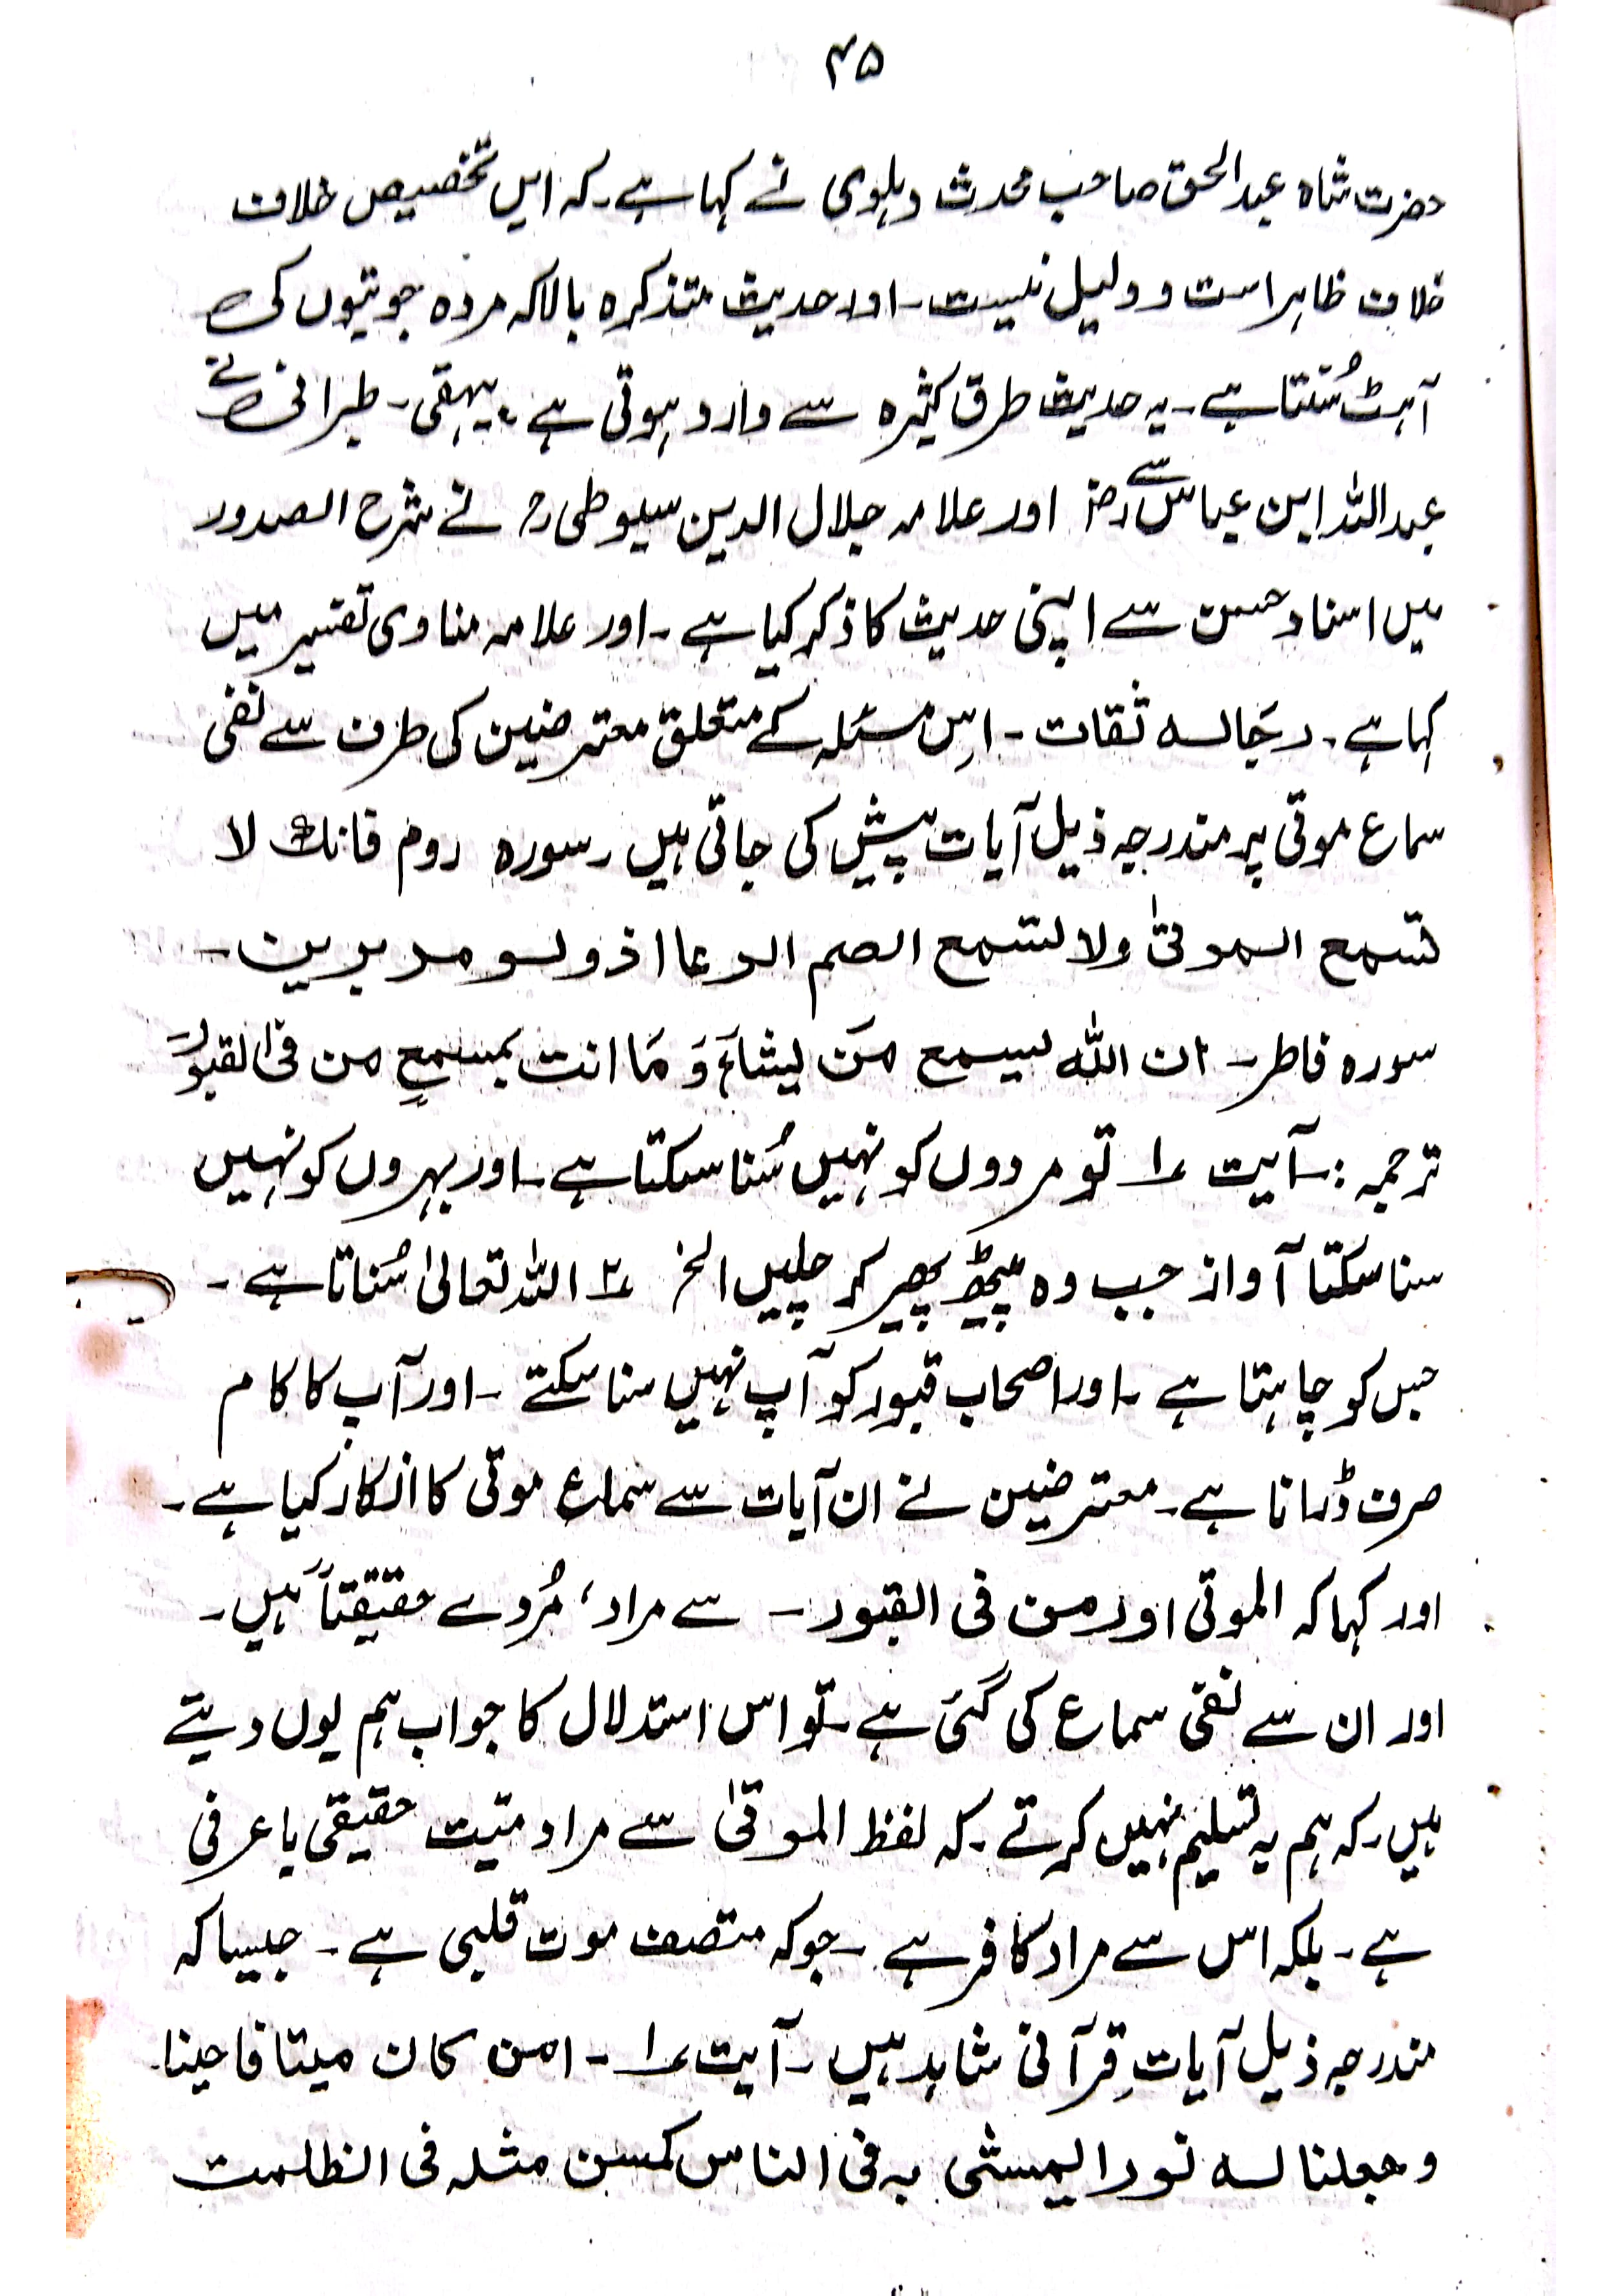 ۴۵
حضرت شاہ عبدالحق صاحب محدث دہلوی نے کہا ہے۔ کہ ایں تخصیص خلاف
خلاف ظاہر است و دلیل نیست۔ اور حدیث متذکرہ بالا کہ مردہ جوتیوں کی
آہٹ سُنتا ہے۔ یہ حدیث طرق کثیرہ سے وارد ہوتی ہے، بیہقی۔ طبرانی نے
عبداللہ ابن عباس رضؓ سے اور علامہ جلال الدین سیوطی رح نے شرح الصدور
میں اسناد حسن سے اپنی حدیث کا ذکر کیا ہے۔ اور علامہ مناوی تفسیر میں
کہا ہے۔ رجَالہ ثقات۔ اِس مسئلہ کے متعلق معترضین کی طرف سے نفی
سماع موتی پر مندرجہ ذیل آیات پیش کی جاتی ہیں۔ سورہ روم فانک لا
تسمع الموتیٰ ولا تسمع الصم الدعا اذ ولو مدبرین۔
سورہ فاطر۔ ان اللہ یسمع مَن یشاءَ وَ مَا انت بمسمعٍ من فی القبورَ
ترجمہ :۔ آیت ۱؎ تو مردوں کو نہیں سُنا سکتا ہے۔ اور بہروں کو نہیں
سنا سکتا آواز جب وہ پیٹھ پھیر کر چلیں الخ ۲؎ اللہ تعالیٰ سُناتا ہے۔
جس کو چاہتا ہے۔ اور اصحاب قبور کو آپ نہیں سنا سکتے۔ اور آپ کا کام
صرف ڈرانا ہے۔ معترضین نے ان آیات سے سماع موتی کا انکار کیا ہے۔
اور کہا کہ الموتی اور من فی القبور۔ سے مراد، مُردے حقیقتاً ہیں۔
اور ان سے نفی سماع کی گئی ہے۔ تو اس استدلال کا جواب ہم یوں دیتے
ہیں۔ کہ ہم یہ تسلیم نہیں کرتے۔ کہ لفظ الموتیٰ سے مراد میّت حقیقی یا عرفی
ہے۔ بلکہ اس سے مراد کافر ہے۔ جو کہ متصف موت قلبی ہے۔ جیسا کہ
مندرجہ ذیل آیاتِ قرآنی شاہد ہیں۔ آیت ۱؎۔ امن کان میتا فاحینا۔
وجعلنا لہ نورا یمشی بہ فی الناس کمن مثلہ فی الظلمت